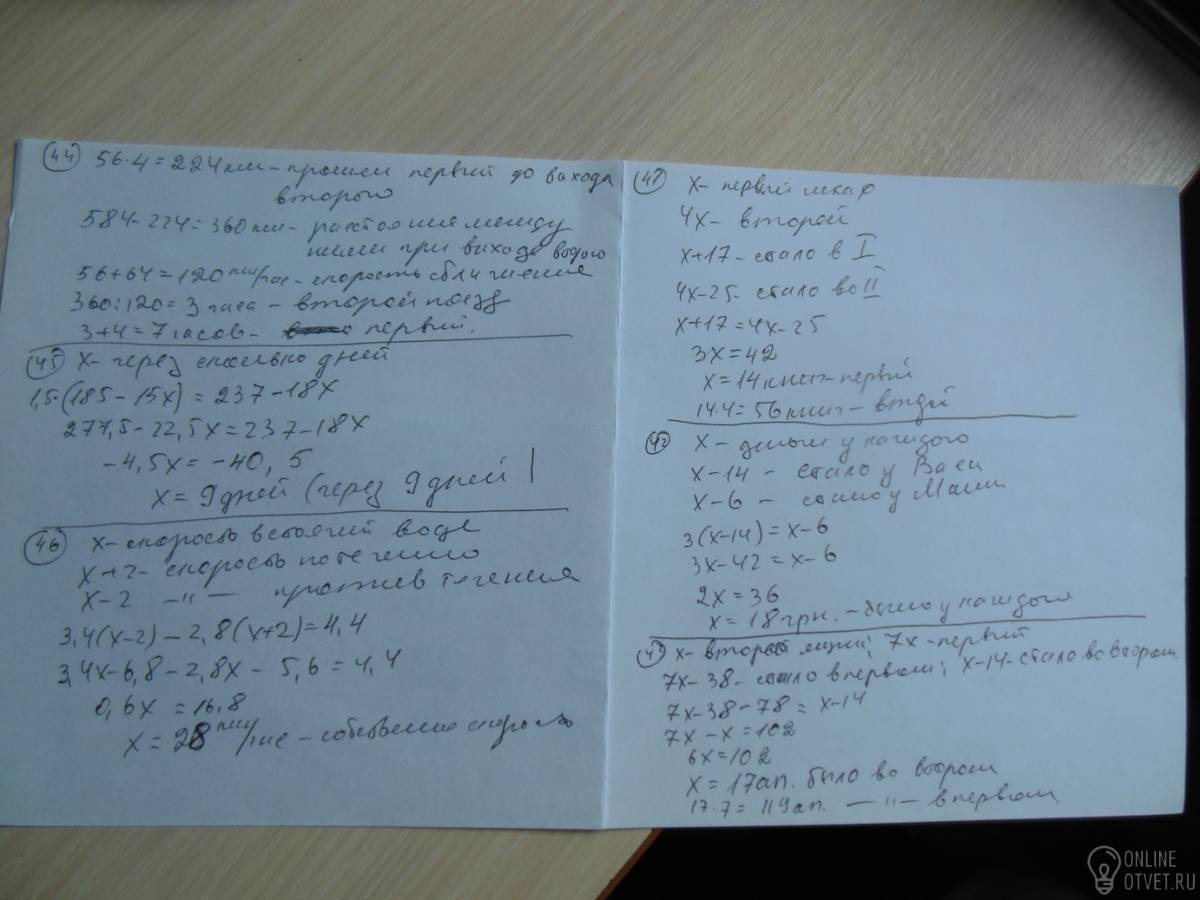 44 56·4=224км-прошел первый до выхода
второго
584-224=360км- расстояние между
ними при выходе второго
56+64=120 км/час-скорость сближения
360:120=3 часа - второй поезд
3+4=7 часов- первый.
45 x- через сколько дней
1,5·(185-15x)=237-18x
277,5-22,5x=237-18x
-4,5x=-40,5
x=9 дней (через 9 дней)
46 x-скорость в стоячей воде
x+2-скорость по течению
x-2 -"- против течения
3,4(x-2)-2,8(x+2)=4,4
3,4x-6,8-2,8x-5,6=4,4
0,6x=16,8
x=28 км/час-собственно скорость
47 x- первый шкаф
4x- второй
x+17- стало в I
4x-25- стало во II
x+17=4x-25
3x=42
x=14 книг-первый
14·4=56 книг-второй
42 x- деньги у каждого
x-14 - стало у Васи
x-6 - стало у Маши
3(x-14)=x-6
3x-42=x-6
2x=36
x=18 грн.-было у каждого
x- второй ящик; 7x-первый
7x-38-стало в первом; x-14-стало во втором
7x-38-78=x-14
7x-x=102
6x=102
x=17 ап. было во втором
17·7=119 ап. -"- в первом
ONLINE
OTVET.RU